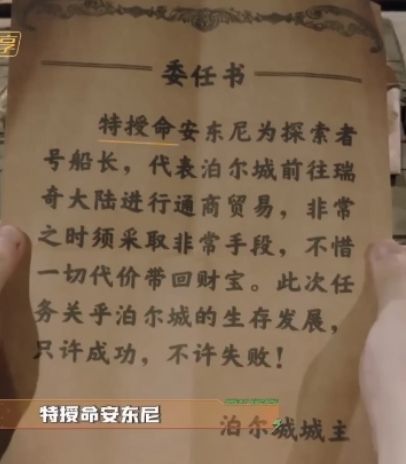 享
委任书
特授命安东尼为探索者
号船长，代表泊尔城前往瑞
奇大陆进行通商贸易，非常
之时须采取非常手段，不惜
一切代价带回财宝。此次任
务关乎泊尔城的生存发展，
只许成功，不许失败！
泊尔城城主
特授命安东尼